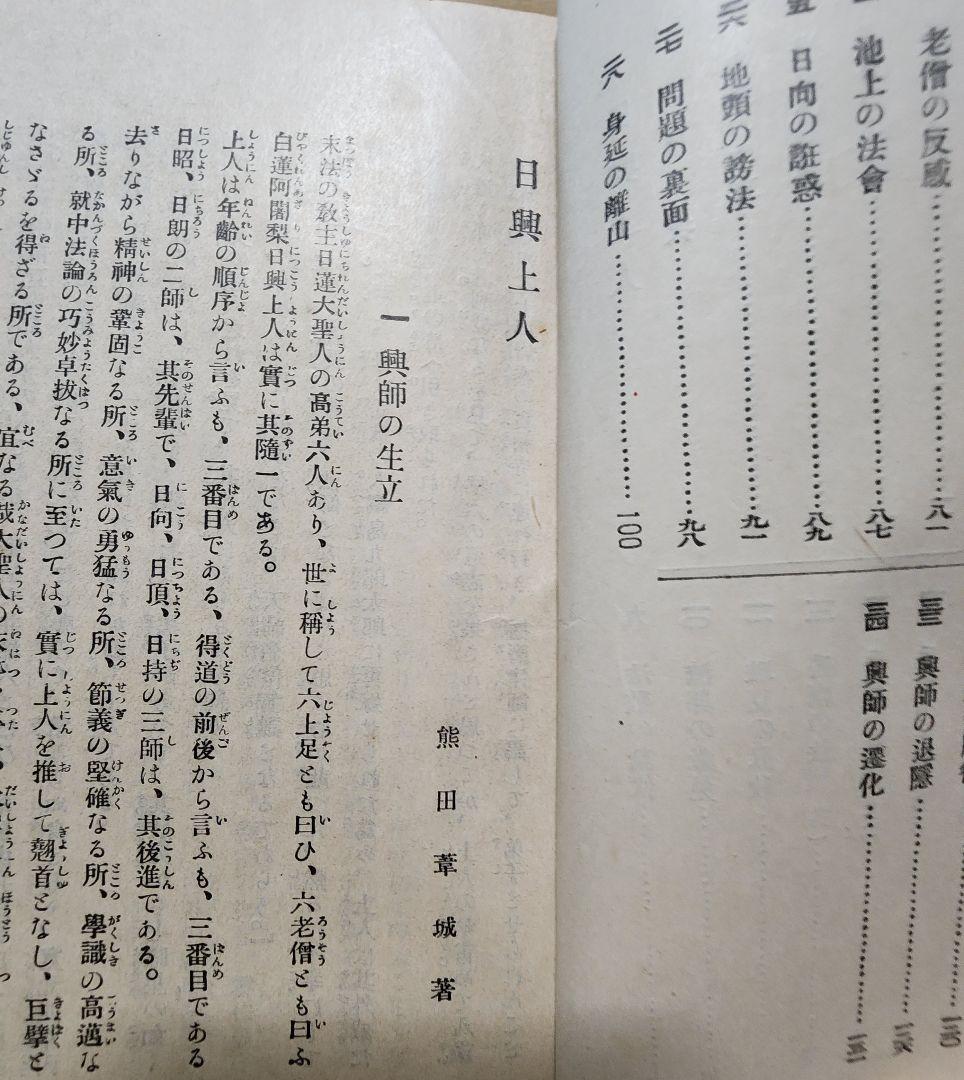 老僧の反感……八一
池上の法會……八七
日向の誑惑……八九
二六 地頭の謗法……九一
二七 問題の裏面……九八
二八 身延の離山……一〇〇
三三 興師の退隱
三四 興師の遷化
日興上人
熊田葦城著
一 興師の生立
末法の敎主日蓮大聖人の高弟六人あり、世に稱して六上足とも曰ひ、六老僧とも曰ふ
白蓮阿闍梨日興上人は實に其隨一である。
上人は年齡の順序から言ふも、三番目である、得道の前後から言ふも、三番目である
日昭、日朗の二師は、其先輩で、日向、日頂、日持の三師は、其後進である。
去りながら精神の鞏固なる所、意氣の勇猛なる所、節義の堅確なる所、學識の高邁な
る所、就中法論の巧妙卓拔なる所に至つては、實に上人を推して翹首となし、巨擘と
なさゞるを得ざる所である、宜なる哉大聖人の